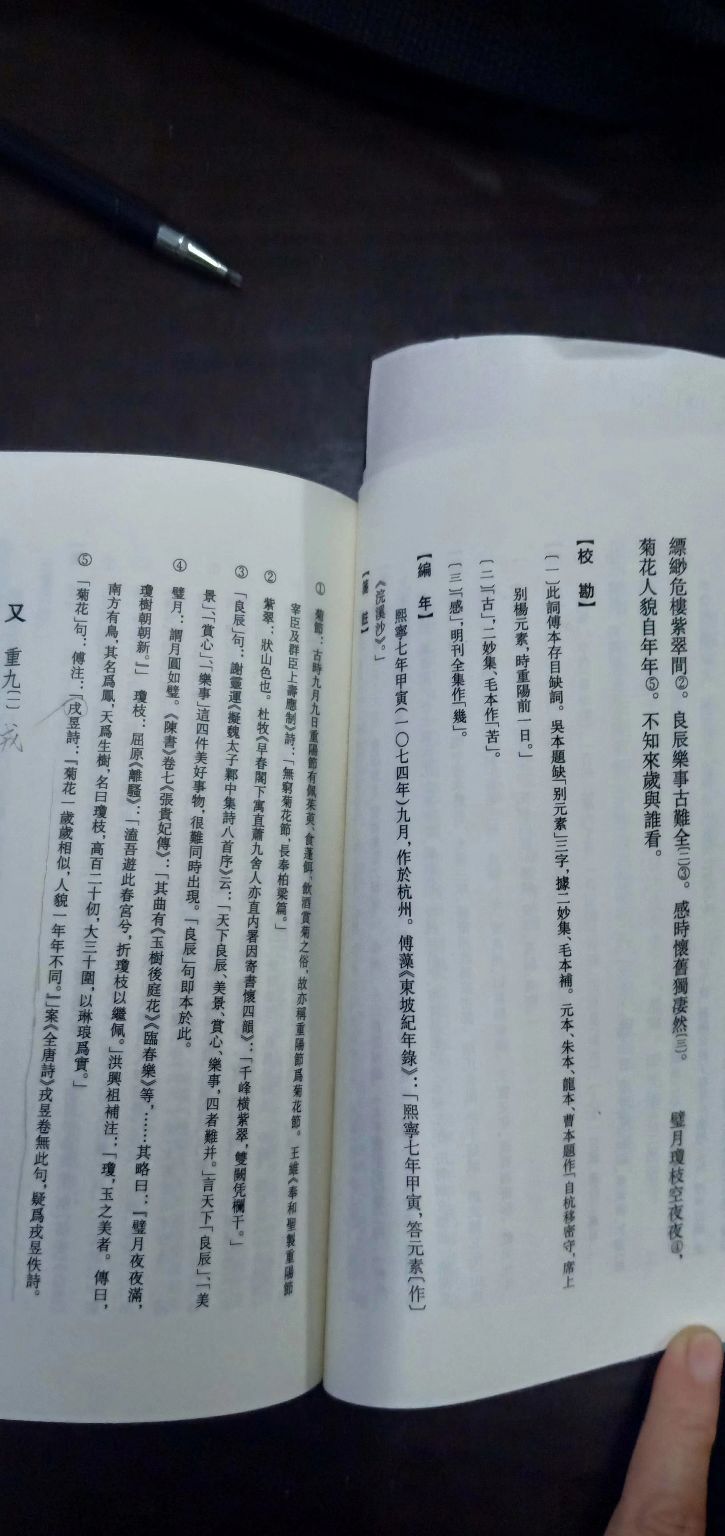 縹緲危樓紫翠間②。良辰樂事古難全〔二〕③。感時懷舊獨凄然〔三〕。　　璧月瓊枝空夜夜④，
菊花人貌自年年⑤。不知來歲與誰看。
【校勘】
〔一〕此詞傅本存目缺詞。吳本題缺「別元素」三字，據二妙集、毛本補。元本、朱本、龍本、曹本題作「自杭移密守，席上
別楊元素，時重陽前一日。」
〔二〕「古」，二妙集、毛本作「苦」。
〔三〕「感」，明刊全集作「幾」。
【編年】
熙寧七年甲寅(一〇七四年)九月，作於杭州。傅藻《東坡紀年錄》：「熙寧七年甲寅，答元素〔作〕
《浣溪沙》。」
① 菊節：古時九月九日重陽節有佩茱萸、食蓬餌、飲酒賞菊之俗，故亦稱重陽節爲菊花節。王維《奉和聖製重陽節
宰臣及群臣上壽應制》詩：「無窮菊花節，長奉柏梁篇。」
② 紫翠：狀山色也。杜牧《早春閣下寓直蕭九舍人亦直内署因寄書懷四韻》：「千峰橫紫翠，雙闕凭欄干。」
③ 「良辰」句：謝靈運《擬魏太子鄴中集詩八首序》云：「天下良辰、美景、賞心、樂事，四者難并。」言天下「良辰」、「美
景」、「賞心」、「樂事」這四件美好事物，很難同時出現。「良辰」句即本於此。
④ 璧月：謂月圓如璧。《陳書》卷七《張貴妃傳》：「其曲有《玉樹後庭花》《臨春樂》等，……其略曰：『璧月夜夜滿，
瓊樹朝朝新。』」　瓊枝：屈原《離騷》：「溘吾遊此春宮兮，折瓊枝以繼佩。」洪興祖補注：「瓊，玉之美者。傳曰，
南方有鳥，其名爲鳳，天爲生樹，名曰瓊枝，高百二十仞，大三十圍，以琳琅爲實。」
⑤ 「菊花」句：傅注：「戌昱詩：『菊花一歲歲相似，人貌一年年不同。』」案《全唐詩》戎昱卷無此句，疑爲戎昱佚詩。
又　重九〔一〕
戎